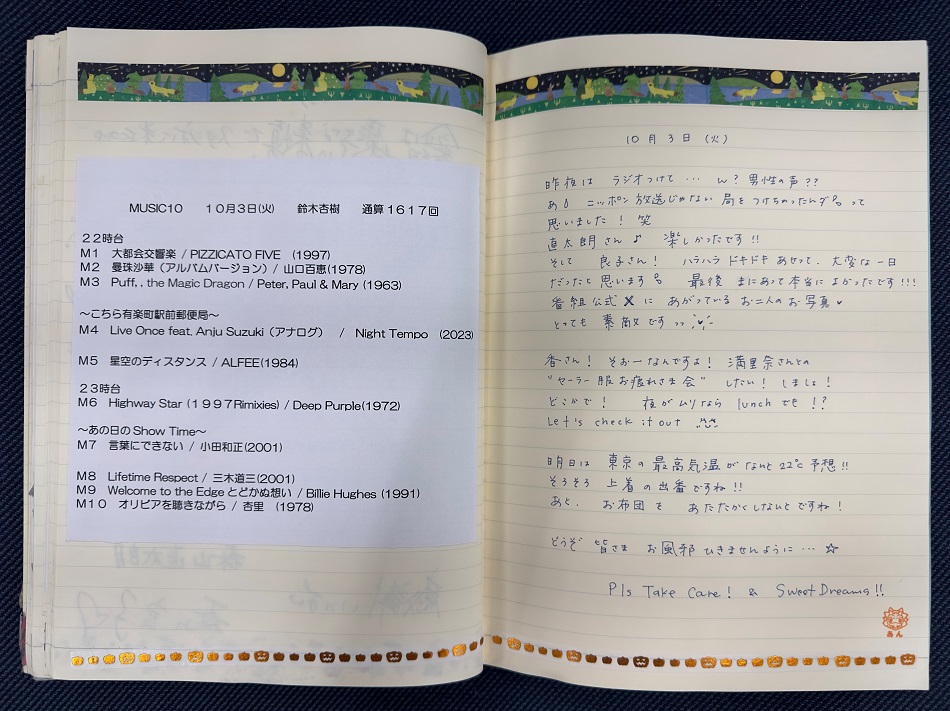 MUSIC10　１０月３日(火)　鈴木杏樹　通算１６１７回
２２時台
M１　大都会交響楽 / PIZZICATO FIVE　(1997)
M２　曼珠沙華（アルバムバージョン）/ 山口百恵(1978)
M３　Puff, , the Magic Dragon / Peter, Paul & Mary (1963)
～こちら有楽町駅前郵便局～
M４　Live Once feat. Anju Suzuki（アナログ）　/　Night Tempo　(2023)
M５　星空のディスタンス / ALFEE(1984)
２３時台
M６　Highway Star（１９９７Rimixies）/ Deep Purple(1972)
～あの日の Show Time～
M７　言葉にできない / 小田和正(2001)
M８　Lifetime Respect / 三木道三(2001)
M９　Welcome to the Edge とどかぬ想い / Billie Hughes (1991)
M１０　オリビアを聴きながら / 杏里　(1978)
10月3日(火)
昨夜は ラジオつけて… ん？男性の声??
あら ニッポン放送じゃない 局をつけちゃったんだ。って
思いました！笑
直太朗さん♪ 楽しかったです!!
そして 良子さん！ ハラハラ ドキドキ あせって、大変な一日
だったと思います。 最後 まにあって本当に よかったです!!!
番組公式 X に あがっている お二人の お写真♥
とっても 素敵です
杏さん！ そおーなんですよ！ 満里奈さんとの
"セーラー服お疲れさま会" したい！ しましょ！
どこかで！ 夜がムリなら lunch でも !?
Let's check it out
明日は 東京の 最高気温が なんと 22℃ 予想!!
そろそろ 上着の出番ですね!!
あと、 お布団を あたたかくしないとですね！
どうぞ 皆さま お風邪 ひきませんように… ☆
Pls Take Care! & Sweet Dreams!!
あん